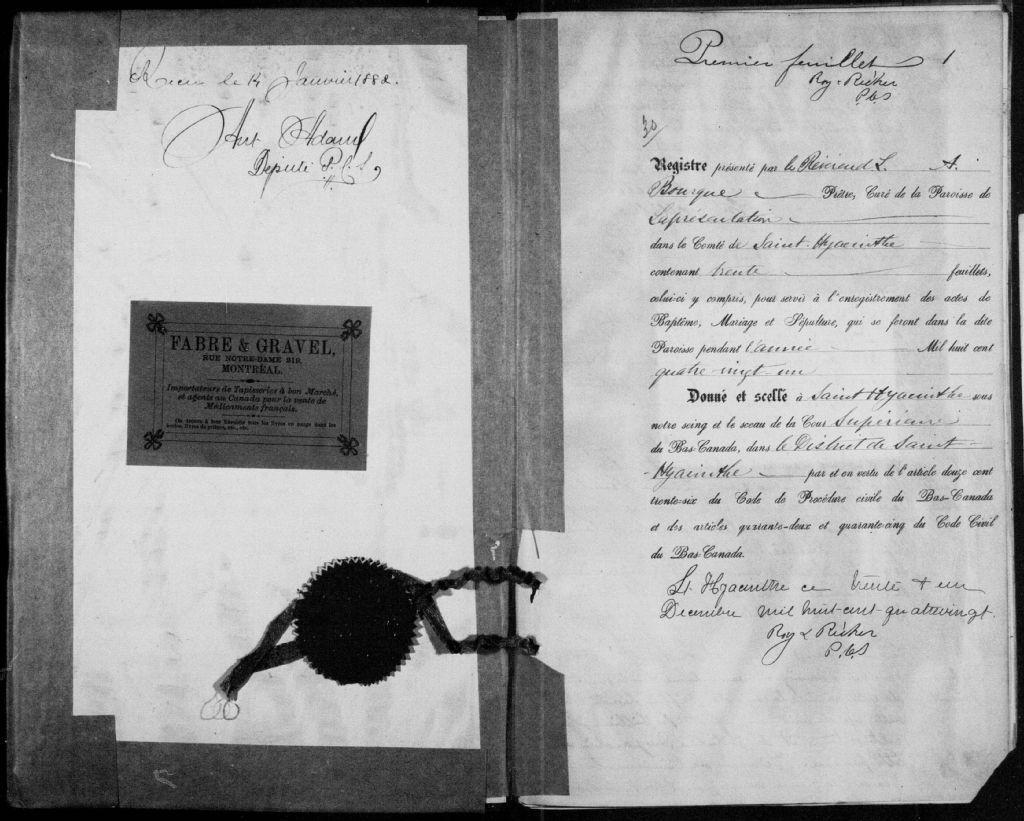 Reçu le 14 Janvier 1882.
Ant Adam
Député P.C.S,
FABRE & GRAVEL,
RUE NOTRE-DAME 219,
MONTRÉAL.
Importateurs de Tapisseries à bon Marché,
et agents au Canada pour la vente de
Médicaments français.
On trouve à leur librairie tous les livres en usage dans les
Premier feuillet 1
Roy & Richer
P.C.S
30
Registre présenté par le Révérend L. A.
Bourque Prêtre, Curé de la Paroisse de
Laprésentation
dans le Comté de Saint-Hyacinthe
contenant trente feuillets,
celui-ci y compris, pour servir à l'enregistrement des actes de
Baptême, Mariage et Sépulture, qui se feront dans la dite
Paroisse pendant l'année Mil huit cent
quatre-vingt-un
Donné et scellé à Saint Hyacinthe sous
notre seing et le sceau de la Cour Supérieure
du Bas-Canada, dans le District de Saint-
Hyacinthe par et en vertu de l'article douze cent
trente-six du Code de Procédure civile du Bas-Canada
et des articles quarante-deux et quarante-cinq du Code Civil
du Bas-Canada.
St. Hyacinthe ce trente & un
Décembre mil huit-cent-quatrevingt.
Roy & Richer
P.C.S